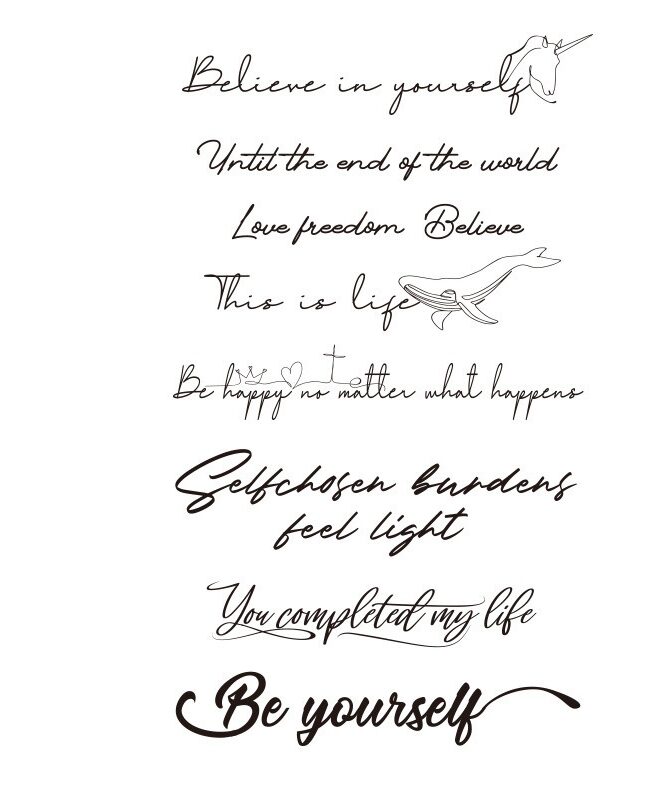 Believe in yourself
Until the end of the world
Love freedom Believe
This is life
Be happy no matter what happens
Selfchosen burdens
feel light
You completed my life
Be yourself